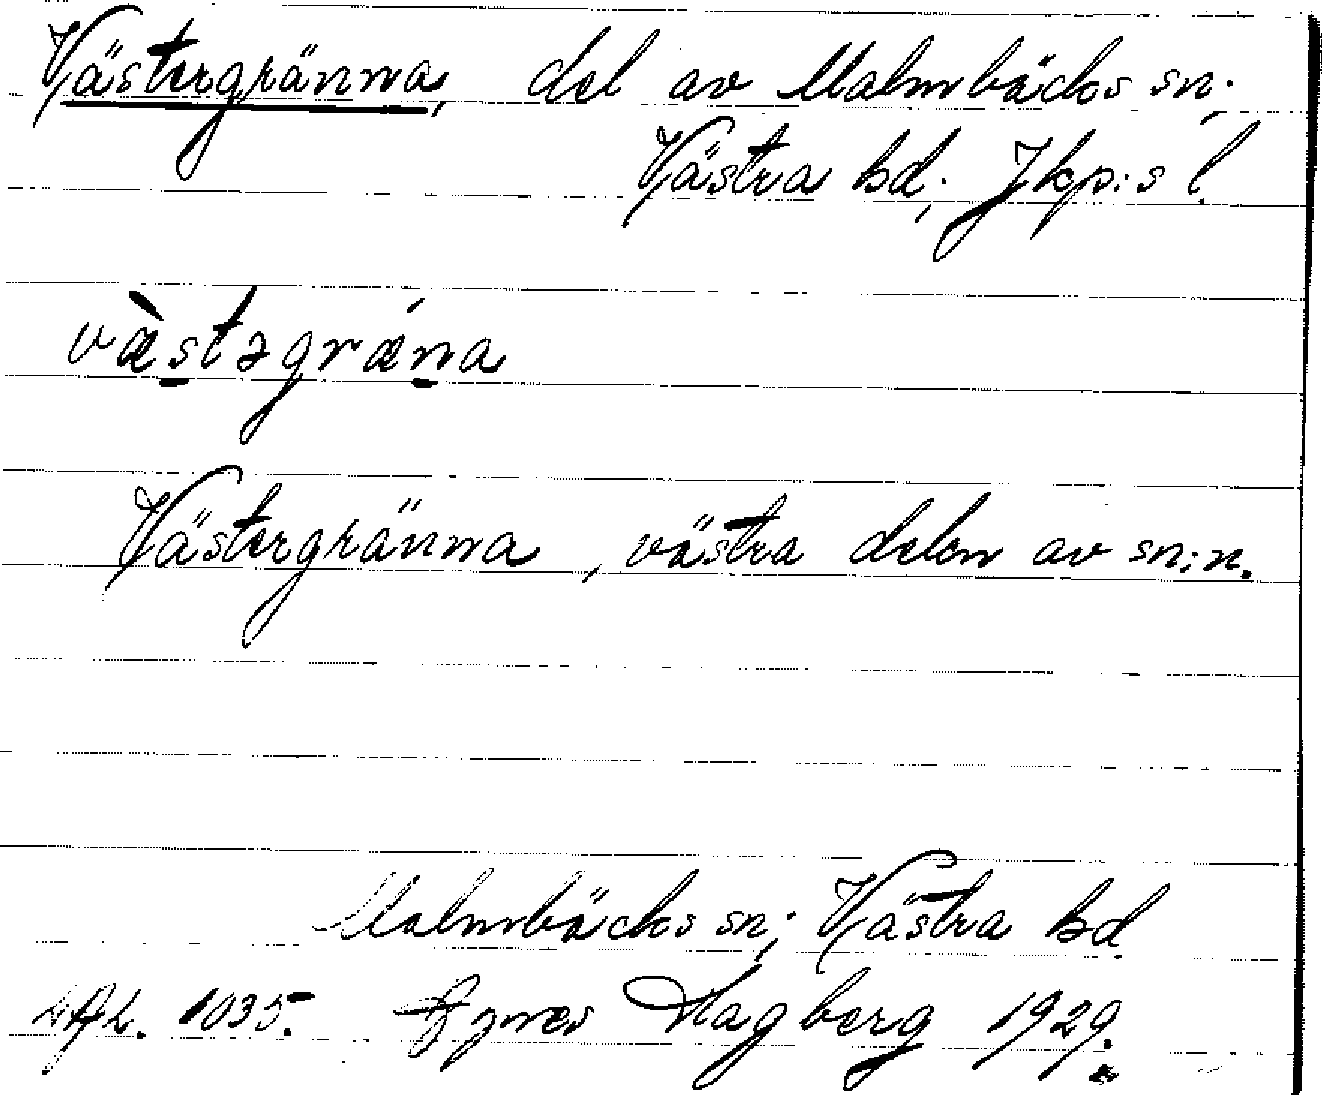 Västergränna, del av Malmbäcks sn.,
Västra hd., Jkp:s l.
væ̀stəgrǽna
Västergränna, västra delen av sn:n.
Malmbäcks sn., Västra hd
1035. Agnes Hagberg 1929.